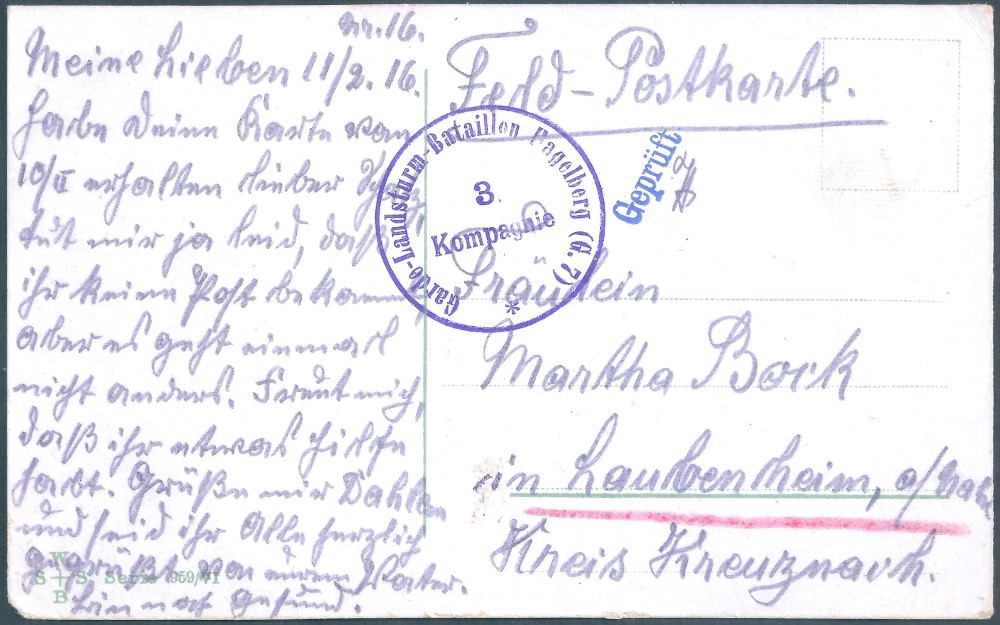 Nr. 16.
Meine Lieben 11/2. 16.
Habe Deine Karte von
10/II erhalten lieber
tut mir ja leid, daß
ihr keine Post bekamt
aber es geht einmal
nicht anders. Freut mich,
daß ihr etwas Hilfe
habt. Grüße mir
und seid ihr Alle herzlich
gegrüßt von eurem Vater.
bin noch Gesund.
W
S+S Serie 959/VI
B
Feld-Postkarte.
Garde-Landsturm-Bataillon Pagelberg (G. 7)
3
Kompagnie
*
Geprüft
Fräulein
Martha Bock
in Laubenheim, a/Nahe
Kreis Kreuznach.